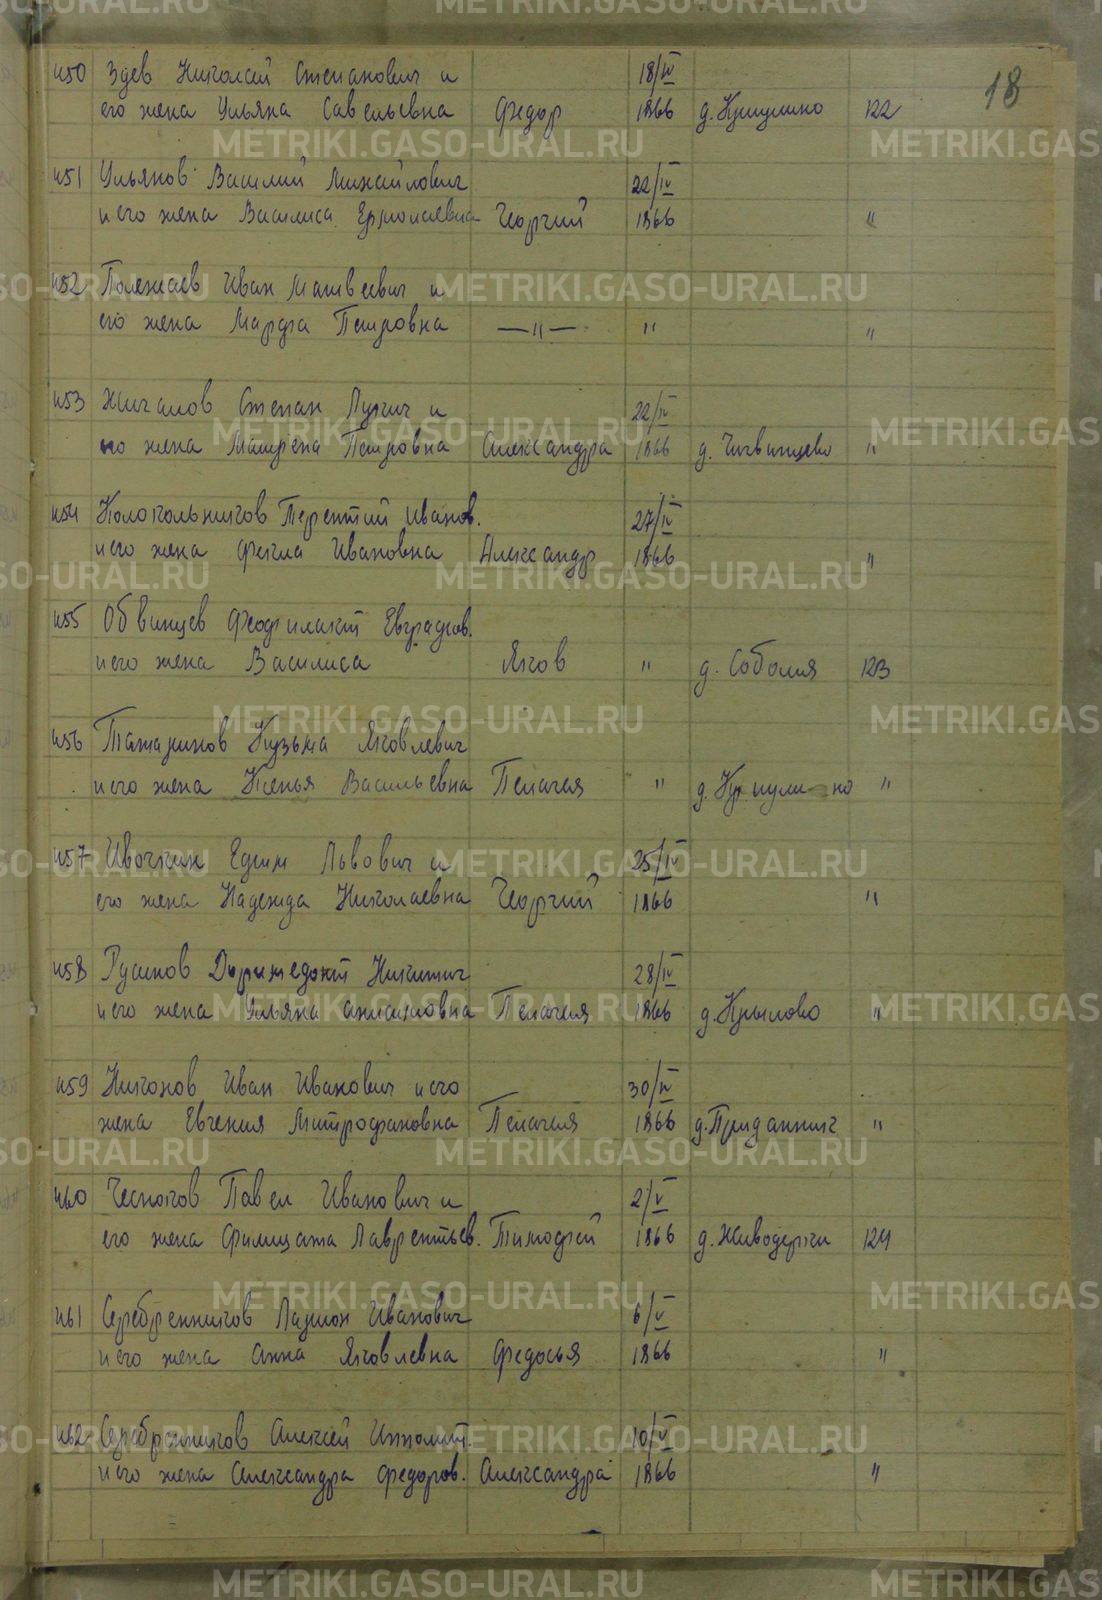 18
450 Здев Николай Степанович и 18/IV
его жена Ульяна Савельевна Федор 1866 д. 122
451 Ульянов Василий Михайлович 22/IV
и его жена Василиса Ермолаевна Георгий 1866 "
452 Полежаев Иван Матвеевич и
его жена Марфа Петровна —"— " "
453 Жигалов Степан Лукич и 22/IV
его жена Матрена Петровна Александра 1866 д. Чигвинцево "
454 Колокольников Терентий Иванов. 27/IV
и его жена Фекла Ивановна Александр 1866 "
455 Обвинцев Феофилакт Евграфов.
и его жена Василиса Яков " д. Соболя 123
456 Татаринов Кузьма Яковлевич
и его жена Ксенья Васильевна Пелагея " "
457 Ивочкин Ефим Львович и 25/IV
его жена Надежда Николаевна Георгий 1866 "
458 Русинов Доримедонт Никитич 28/IV
и его жена Ульяна Анисимовна Пелагея 1866 д. Крылово "
459 Никонов Иван Иванович и его 30/IV
жена Евгения Митрофановна Пелагея 1866 д. Приданник "
460 Чесноков Павел Иванович и 2/V
его жена Филицата Лаврентьев. Тимофей 1866 д. Живодерки 124
461 Серебренников Ларион Иванович 6/V
и его жена Анна Яковлевна Федосья 1866 "
462 Серебренников Алексей Ипполит. 10/V
и его жена Александра Федоров. Александра 1866 "
METRIKI.GASO-URAL.RU